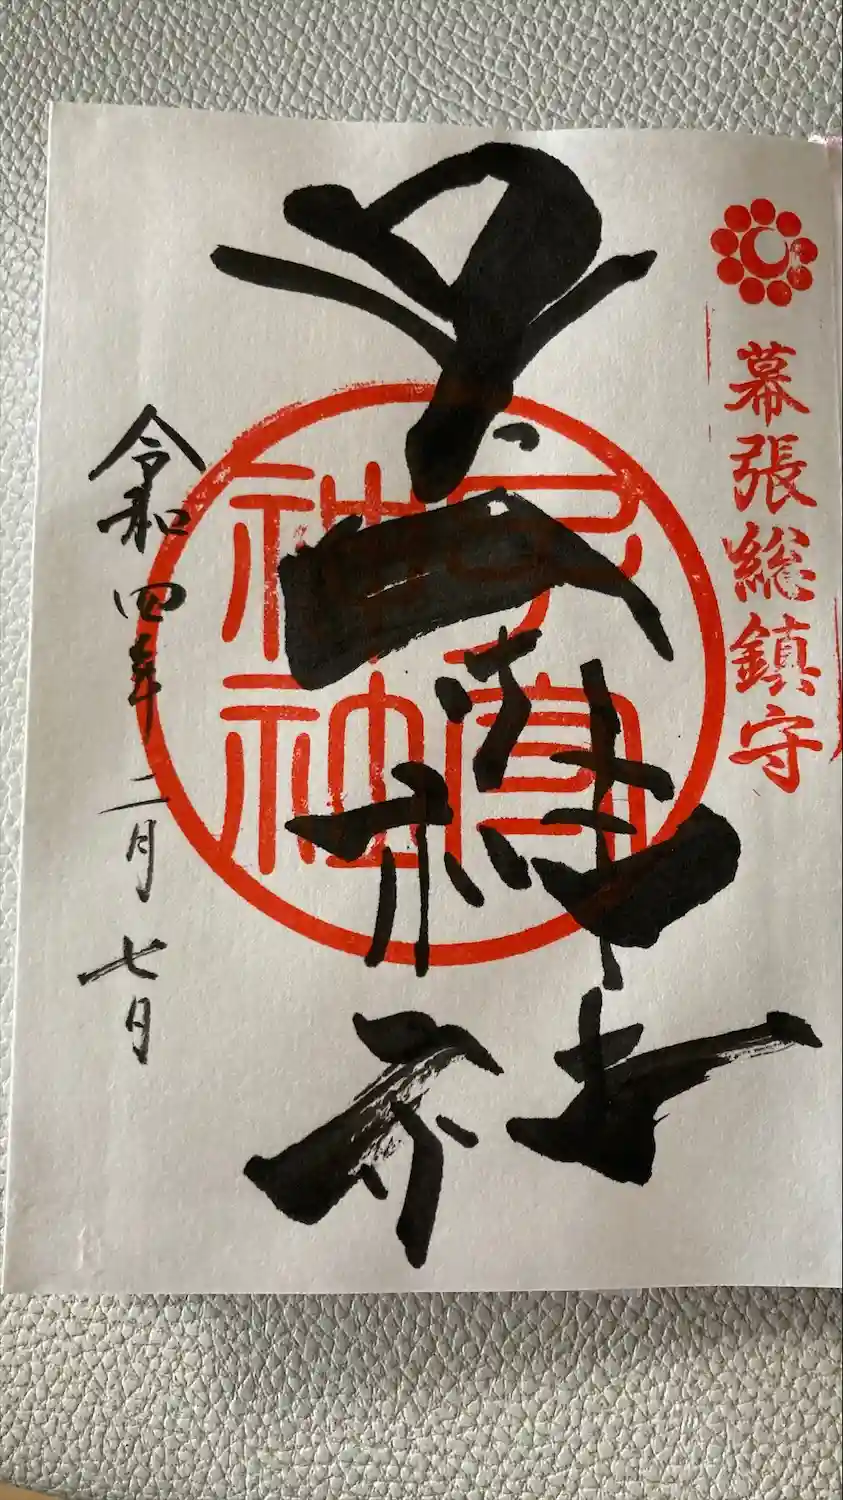 幕張総鎮守
子守神社
令和四年二月七日